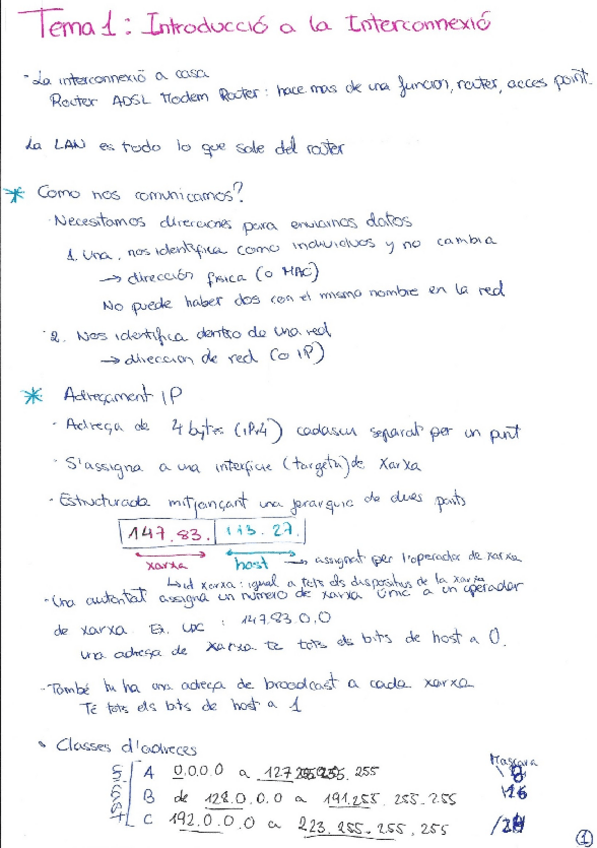 Tema 1: Introducció a la Interconnexió
- La interconnexió a casa
Router ADSL Modem Router: hace mas de una funcion, router, acces point.
La LAN es todo lo que sale del router
* Como nos comunicamos?
- Necesitamos direcciones para enviarnos datos
1. Una, nos identifica como individuos y no cambia
→ dirección física (o MAC)
No puede haber dos con el mismo nombre en la red
2. Nos identifica dentro de una red
→ direccion de red (o IP)
* Adreçament IP
- Adreça de 4 bytes (IPv4) cadascun separat per un punt
- S'assigna a una interfície (targeta) de xarxa
- Estructurada mitjançant una jerarquia de dues parts
147.83. 113.27.
xarxa host → assignat per l'operador de xarxa
↳ id xarxa: igual a tots els dispositius de la xarxa
- Una autoritat assigna un número de xarxa únic a un operador
de xarxa. Ex. UPC : 147.83.0.0
una adreça de xarxa te tots els bits de host a 0.
- També hi ha una adreça de broadcast a cada xarxa
Té tots els bits de host a 1
• Classes d'adreces
Mascara
A 0.0.0.0 a 127.255.255.255 \8
B de 128.0.0.0 a 191.255.255.255 \16
C 192.0.0.0 a 223.255.255.255 /24
1